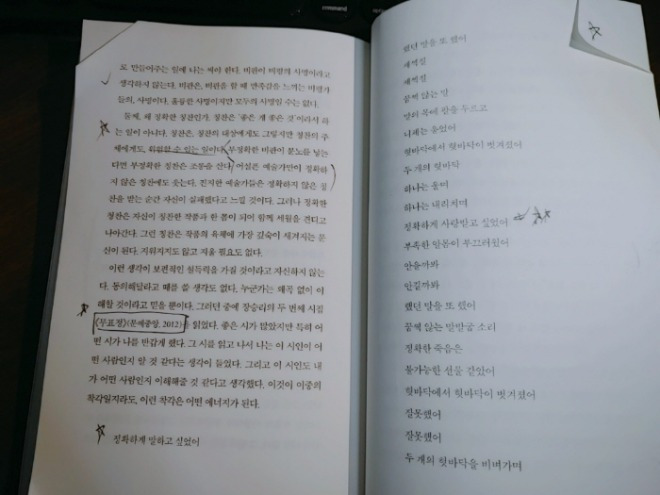 command
로 만들어주는 일에 나는 써야 한다. 비판이 비평의 사명이라고
생각하지 않는다. 비판은, 비판을 할 때 만족감을 느끼는 비평가
들의, 사명이다. 훌륭한 사명이지만 모두의 사명일 수는 없다.
둘째, 왜 정확한 칭찬인가. 칭찬은 '좋은 게 좋은 것'이라서 하
는 일이 아니다. 칭찬은, 칭찬의 대상에게도 그렇지만 칭찬의 주
체에게도, 위험할 수 있는 일이다. 부정확한 비판이 분노를 낳는
다면 부정확한 칭찬은 조롱을 산다. 어설픈 예술가만이 정확하
지 않은 칭찬에도 웃는다. 진지한 예술가들은 정확하지 않은 칭
찬을 받는 순간 자신이 실패했다고 느낄 것이다. 그러나 정확한
칭찬은 자신이 칭찬한 작품과 한 몸이 되어 함께 세월을 견디고
나아간다. 그런 칭찬은 작품의 육체에 가장 깊숙이 새겨지는 문
신이 된다. 지워지지도 않고 지울 필요도 없다.
이런 생각이 보편적인 설득력을 가질 것이라고 자신하지 않는
다. 동의해달라고 떼를 쓸 생각도 없다. 누군가는 왜곡 없이 이
해할 것이라고 믿을 뿐이다. 그러던 중에 장승리의 두 번째 시집
《무표정》(문예중앙, 2012)을 읽었다. 좋은 시가 많았지만 특히 어
떤 시가 나를 반갑게 했다. 그 시를 읽고 나서 나는 이 시인이 어
떤 사람인지 알 것 같다는 생각이 들었다. 그리고 이 시인도 내
가 어떤 사람인지 이해해줄 것 같다고 생각했다. 이것이 이중의
착각일지라도, 이런 착각은 어떤 에너지가 된다.
정확하게 말하고 싶었어
했던 말을 또 했어
채찍질
채찍질
꿈쩍 않는 말
말의 목에 팔을 두르고
니체는 울었어
혓바닥에서 혓바닥이 벗겨졌어
두 개의 혓바닥
하나는 울며
하나는 내리치며
정확하게 사랑받고 싶었어
부족한 알몸이 부끄러웠어
안을까봐
안길까봐
했던 말을 또 했어
꿈쩍 않는 말발굽 소리
정확한 죽음은
불가능한 선물 같았어
혓바닥에서 혓바닥이 벗겨졌어
잘못했어
잘못했어
두 개의 혓바닥을 비벼가며